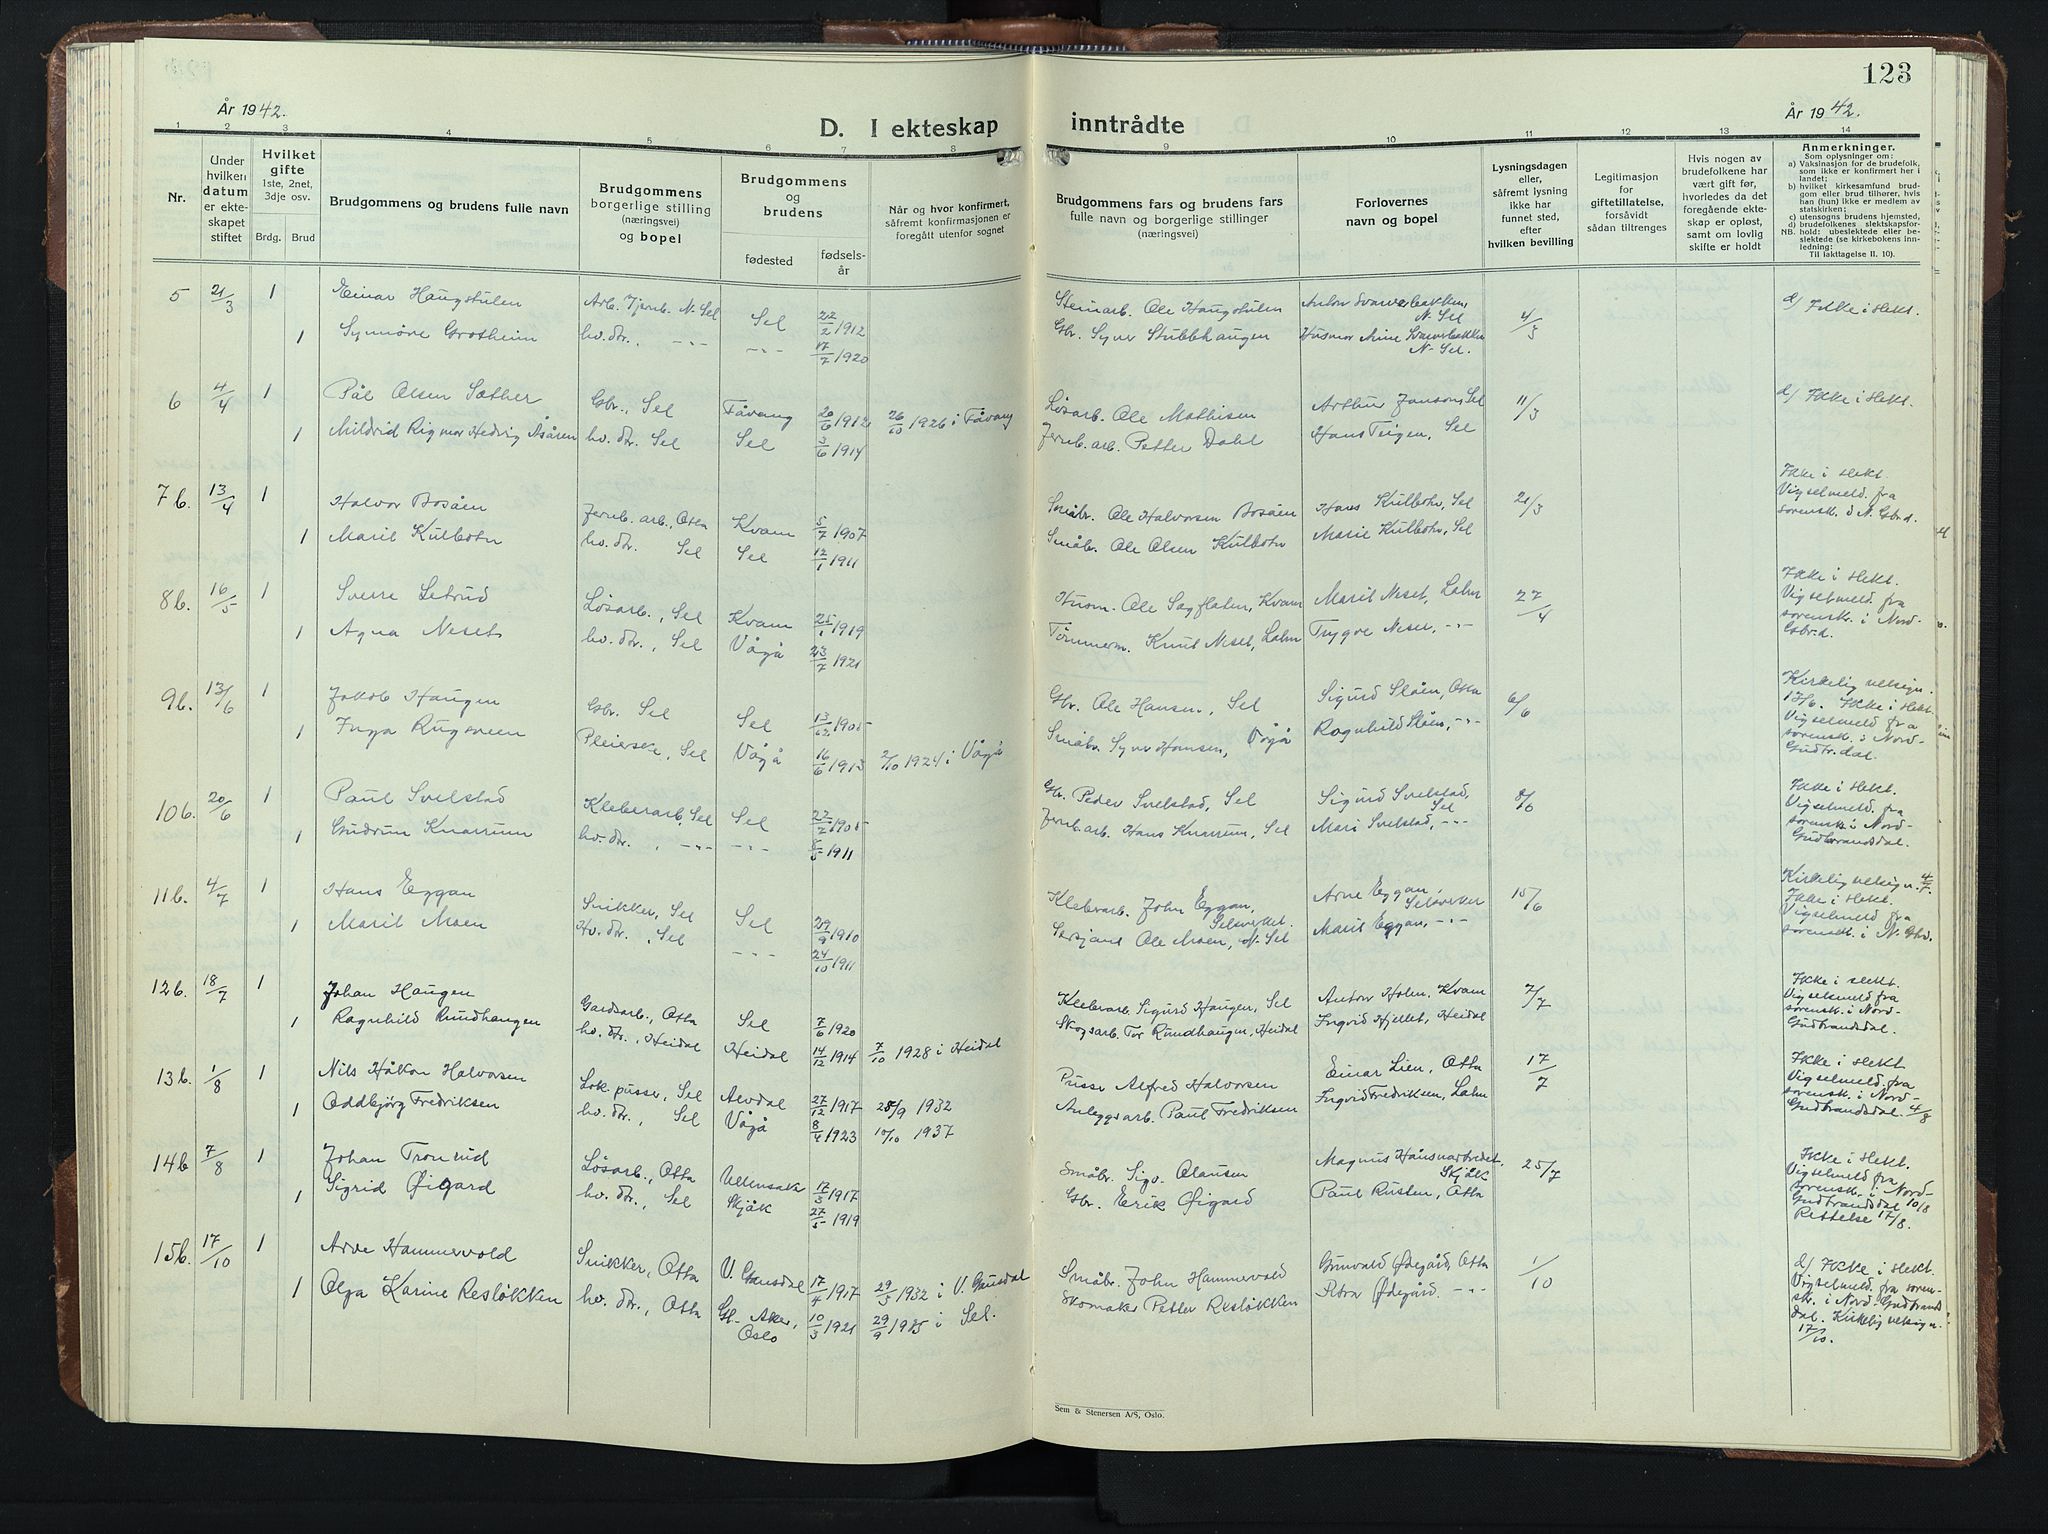 123
År 1942.
År 1942.
D. I ekteskap inntrådte
1 2 3 4 5 6 7 8 9 10 11 12 13 14
Nr.
Under hvilken datum er ekteskapet stiftet
Hvilket gifte
1ste, 2net, 3dje osv.
Brdg. Brud
Brudgommens og brudens fulle navn
Brudgommens borgerlige stilling (næringsvei) og bopel
Brudgommens og brudens
fødested
fødselsår
Når og hvor konfirmert, såfremt konfirmasjonen er foregått utenfor sognet
Brudgommens fars og brudens fars fulle navn og borgerlige stillinger (næringsvei)
Forlovernes navn og bopel
Lysningsdagen eller, såfremt lysning ikke har funnet sted, efter hvilken bevilling
Legitimasjon for giftetillatelse, forsåvidt sådan tiltrenges
Hvis nogen av brudefolkene har vært gift før, hvorledes da det foregående ekteskap er opløst, samt om lovlig skifte er holdt
Anmerkninger.
Som oplysninger om:
a) Vaksinasjon for de brudefolk, som ikke er konfirmert her i landet;
b) hvilket kirkesamfund brudgom eller brud tilhører, hvis han (hun) ikke er medlem av statskirken;
c) utensogns brudens hjemsted,
d) brudefolkenes slektskapsforhold: ubeslektede eller beslektede (se kirkebokens innledning:
NB.
Til iakttagelse II. 10).
5 21/3 1 Einar Haugstulen Arb. Jernb. N. Sel Sel 22/2 1912 Steinarb. Ole Haugstulen Anton Svarverbakken, N. Sel 4/3 d) Ikke i slekt.
1 Synnøve Grotheim hv. dtr., -"- -"- 17/7 1920 Gbr. Syver Stubbhaugen Husmor Mine Svarverbakken N. Sel.
6 4/4 1 Pål Olsen Sæther Gbr., Sel Fåvang 20/6 1912 26/10 1926 i Fåvang Løsarb. Ole Mathisen Arthur Janson, Sel 11/3 d) Ikke i slekt.
1 Mildrid Rigmor Hedvig Asåren hv. dtr. Sel Sel 3/6 1914 Jernb. arb. Petter Dahl Hans Teigen, Sel
7 b. 13/4 1 Halvor Bosåen Jernb. arb., Otta Kvam 5/7 1907 Småbr. Ole Halvorsen Bosåen Hans Kulbotn, Sel 21/3 Ikke i slekt. Vigselmeld. fra sorensk. i N. Gbr.d.
1 Marit Kulbotn hv. dtr. Sel Sel 12/1 1911 Småbr. Ole Olsen Kulbotn Marie Kulbotn, Sel
8 b. 16/5 1 Sverre Letrud Løsarb., Sel Kvam 25/1 1919 Husm. Ole Sagflaten, Kvam Marit Neset, Lalm 27/4 Ikke i slekt. Vigselmeld. fra sorenskr. i Nord-Gbr.d.
1 Agna Neset hv. dtr., Sel Vågå 23/7 1921 Tømmerm. Knut Neset, Lalm Trygve Neset, -"-
9 b. 13/6 1 Jakob Haugen Gbr. Sel Sel 13/12 1905 Gbr. Ole Hansen, Sel Sigurd Slåen, Otta 6/6 Kirkelig velsign. 17/6. Ikke i slekt. Vigselmeld. fra sorensk. i Nord-Gudbr.dal.
1 Inga Rugsveen Pleierske, Sel Vågå 16/6 1913 2/10 1924 i Vågå Småbr. Syver Hansen, Vågå Ragnhild Slåen, -"-
10 b. 20/6 1 Paul Svelstad Kleberarb., Sel Sel 22/2 1905 Gbr. Peder Svelstad, Sel Sigurd Svelstad, Sel 8/6 Ikke i slekt. Vigselmeld. fra sorensk. i Nord-Gudbrandsdal.
1 Gudrun Knarrum hv. dtr., -"- -"- 8/5 1911 Jernb. arb. Hans Knarrum, Sel Mari Svelstad, -"-
11 b. 4/7 1 Hans Eggan Snikker, Sel Sel 29/9 1910 Kleberarb. John Eggan, Selsverket. Arne Eggan, Selsverket 15/6 Kirkelig velsign. 4/7. Ikke i slekt. Vigselmeld fra sorenskr. i N. Gbrd.
1 Marit Moen Hv. dtr., Sel -"- 24/10 1911 Sersjant Ole Moen, N. Sel Marit Eggan, -"-
12 b. 18/7 1 Johan Haugen Gardsarb., Otta Sel 7/6 1920 Kleberarb. Sigurd Haugen, Sel Anton Holm, Kvam 7/7 Ikke i slekt. Vigselmeld fra sorensk. i Nord-Gudbrandsdal.
1 Ragnhild Rundhaugen hv. dtr., Heidal Heidal 14/12 1914 7/10 1928 i Heidal Skogsarb. Tor Rundhaugen, Heidal Ingvid Hjellet, Heidal
13 b. 1/8 1 Nils Håkon Halvorsen Lok. pusser, Sel Alvdal 27/12 1917 25/9 1932 Pusser Alfred Halvorsen Einar Lien, Otta 17/7 Ikke i slekt Vigselmeld. fra sorensk. i Nord-Gudbrandsdal. 4/8
1 Oddbjørg Fredriksen hv. dtr., Sel Vågå 8/4 1923 10/10 1937 Anleggsarb. Paul Fredriksen Ingvid Fredriksen, Lalm
14 b 7/8 1 Johan Tronrud Løsarb., Otta Ullensak 17/3 1917 Småbr. Sigv. Olausen Magnus Håmsnarbredet, Skjåk 25/7 Ikke i slekt. Vigselmeld fra sorensk. i Nord-Gudbrandsdal 10/8 Rettelse 17/8.
1 Sigrid Øigard hv. dtr., Sel Skjåk 27/5 1919 Gbr. Erik Øigard Paul Rusten, Otta
15 b. 17/10 1 Arve Hammervold Snikker, Otta V. Gausdal 17/4 1917 29/5 1932 i V. Gausdal Småbr. John Hammervold Grunvald Ødegård, Otta 1/10 d) Ikke i slekt. Vigselmeld. fra sorenskr. i Nord-Gudbrandsdal. Kirkelig velsign. 17/10.
1 Olga Karine Resløkken hv. dtr., Otta Gl. Aker, Oslo 10/3 1921 29/9 1935 i Sel. Skomaker Petter Resløkken Petra Ødegård. -"-
Sem & Stenersen A/S, Oslo.